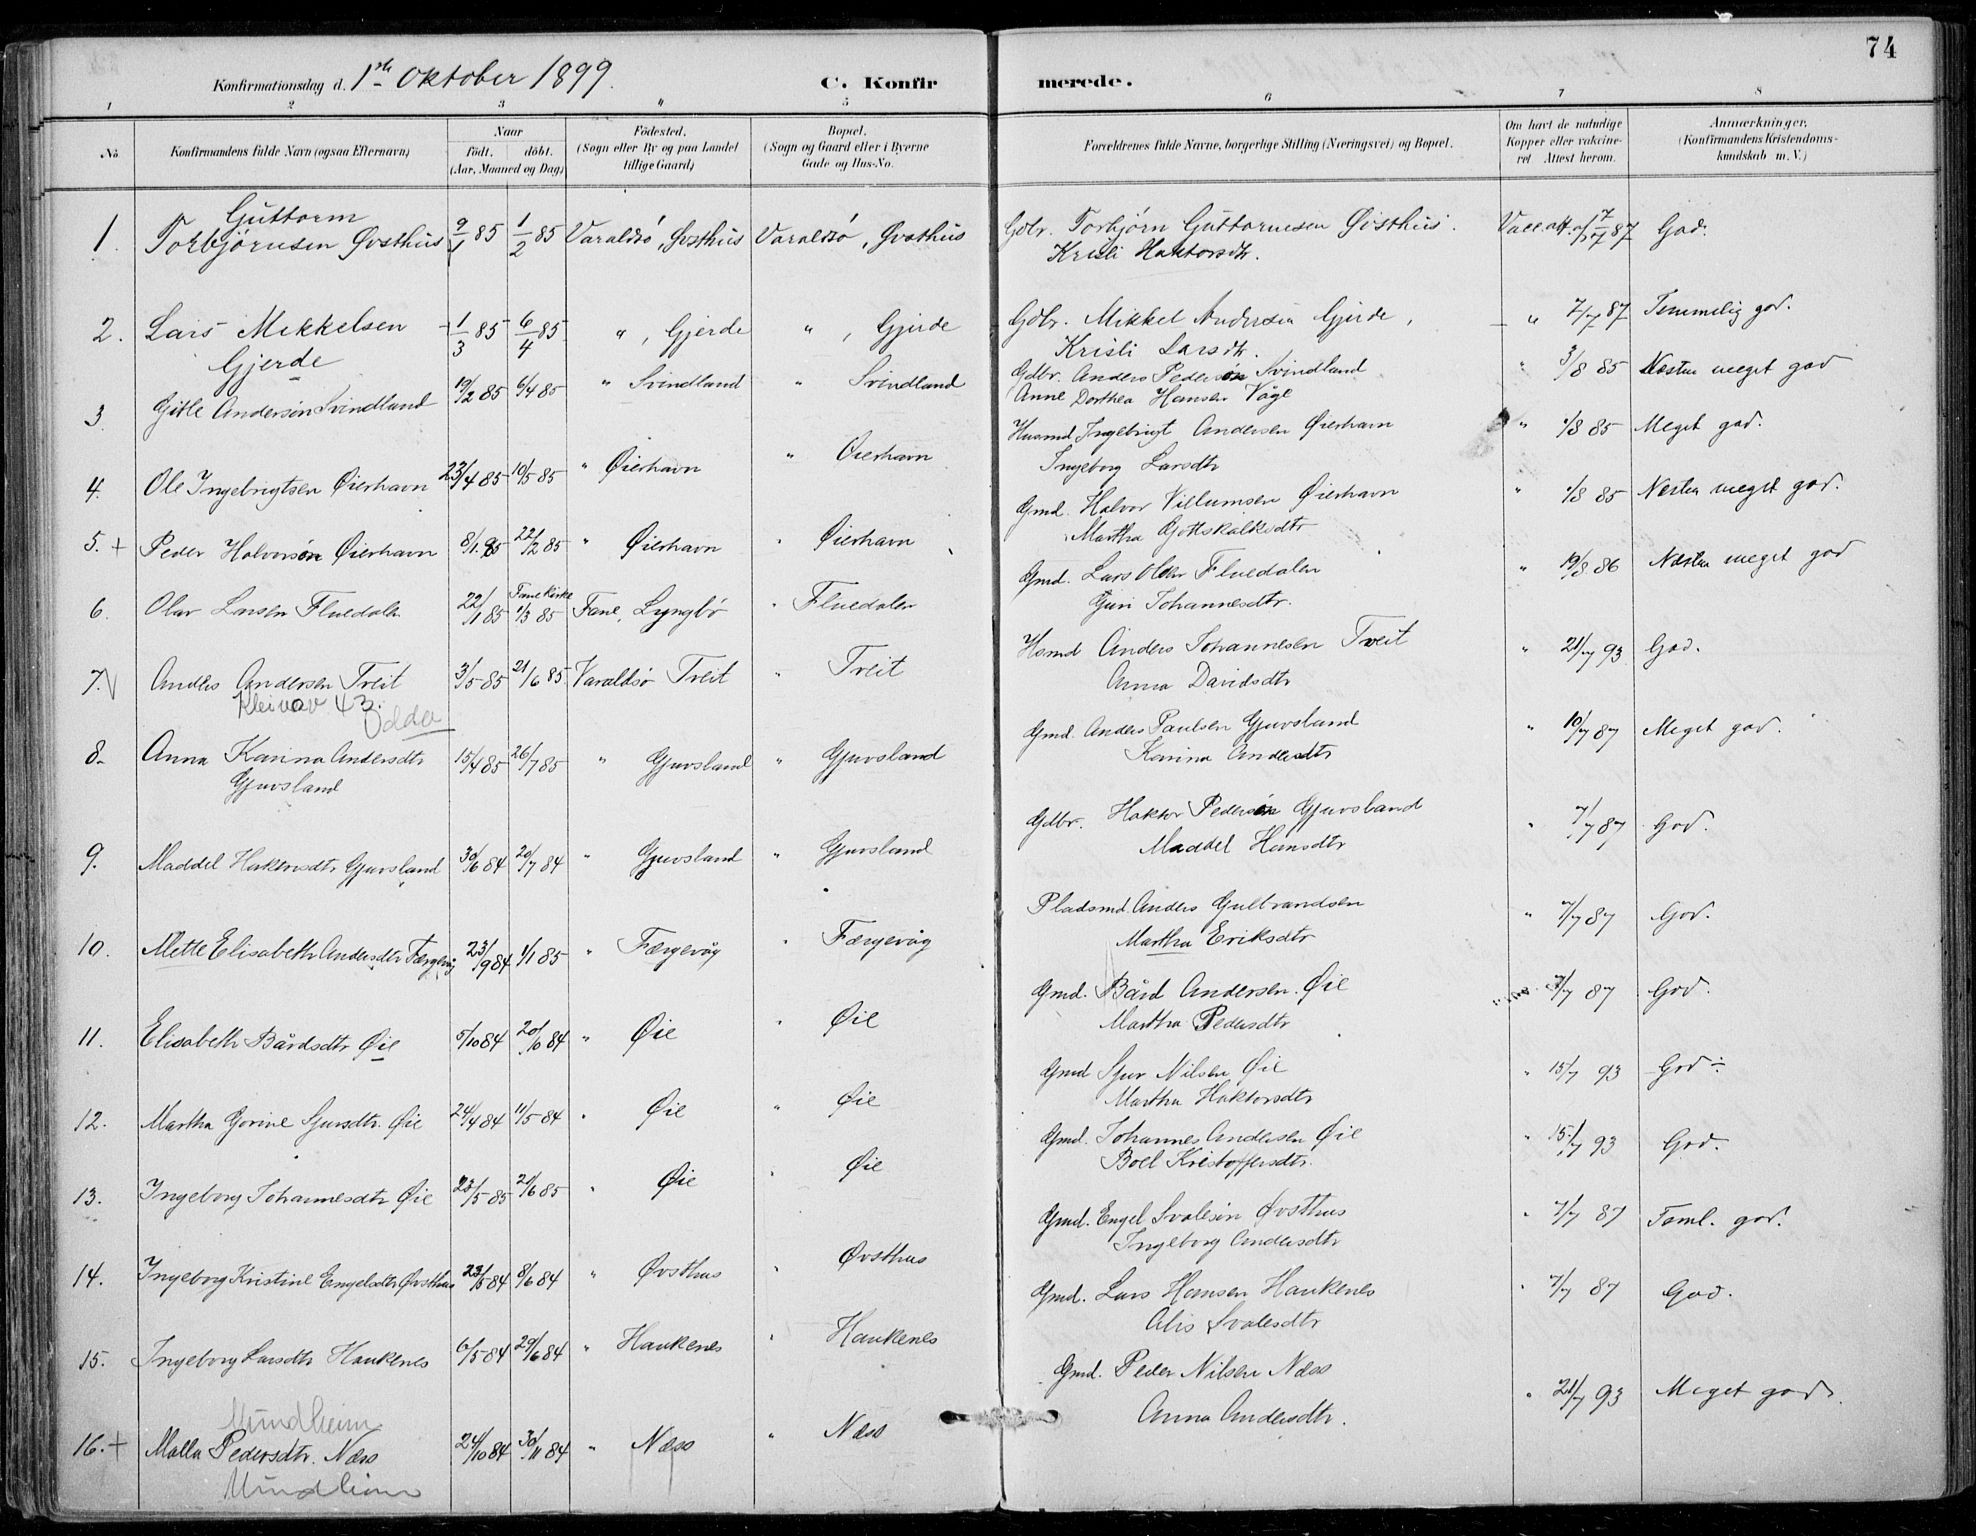 74
Konfirmationsdag d. 1ste Oktober 1899. C. Konfir merede.
1 2 3 4 5 6 7 8
No Konfirmandens fulde Navn (ogsaa Efternavn) Naar födt. döbt. (Aar, Maaned og Dag)
Födested. (Sogn eller By og paa Landet tillige Gaard)
Bopæl. (Sogn og Gaard eller i Byerne Gade og Hus-No.
Forældrenes fulde Navne, borgerlige Stilling (Næringsvei) og Bopæl.
Om havt de naturlige Kopper eller vaccineret Attest herom.
Anmærkninger. (Konfirmandens Kristendomskundskab m. V.)
Guttorm
1. Torbjörnsen Øvsthus 9/1 85 1/2 85 Varaldsö, Øvsthus Varaldsö, Øvsthus Gdbr. Torbjørn Guttormsen Øvsthus. Vacc. att. 7/7 87 God.
Kristi Haktorsdtr.
2. Lars Mikkelsen 1/3 85 6/4 85 " , Gjerde " , Gjerde Gdbr. Mikkel Andersen Gjerde, " 7/7 87 Temmelig god.
Gjerde Kristi Larsdtr.
3. Gitle Andersön Svindland 19/2 85 6/4 85 " Svindland " Svindland Gdbr. Anders Pedersön Svindland " 3/8 85 Næsten meget god
Anne Dorthea Hansen Våge
4. Ole Ingebrigtsen Øierhavn 23/4 85 10/5 85 " Øierhavn " Øierhavn Husmd Ingebrigt Andersen Øierhavn " 1/8 85 Meget god.
Ingeborg Larsdtr
5. + Peder Halvorsön Øierhavn 8/1 85 22/2 85 " Øierhavn " Øierhavn Gmd. Halvor Villumsen Øierhavn " 1/8 85 Næsten meget god.
Martha Gjottskalksdtr
6. Olav Larsen Fluedalen 22/1 85 Fane Kirke 1/3 85 Fane, Lyngbö " Fluedalen Gmd. Lars Olsen Fluedalen " 19/8 86 Næsten meget god
Guri Johannesdtr.
7. Anders Andersen Treit 3/5 85 21/6 85 Varaldsö Treit " Treit Hsmd Anders Johannesen Treit " 21/7 93 God.
Kleivav 43. Anna Davidsdtr
Odda
8. Anna Karina Andersdtr 15/4 85 26/7 85 " Gjuvsland " Gjuvsland Gmd. Anders Paulsen Gjuvsland " 10/7 87 Meget god.
Gjuvsland Karina Andersdtr
9. Maddel Haktorsdtr Gjuvsland 30/6 84 20/7 84 " Gjuvsland " Gjuvsland Gdbr. Haktor Pedersön Gjuvsland " 7/7 87 God.
Maddel Hansdtr
10. Mette Elisabeth Andersdtr Færgevåg 23/9 84 1/1 85 " Færgevåg " Færgevåg Pladsmd. Anders Gulbrandsen " 7/7 87 God.
Martha Eriksdtr
11. Elisabeth Bårdsdtr Øie 5/10 84 20/10 84 " Øie " Øie Gmd. Bård Andersen Øie 7/7 87 God.
Martha Pedersdtr
12. Martha Gorine Sjursdtr. Øie 24/4 84 11/5 84 " Øie " Øie Gmd Sjur Nilsen Øie " 15/7 93 God ÷
Martha Haktorsdtr
13. Ingeborg Johannesdtr Øie 23/5 85 21/6 85 " Øie " Øie Gmd. Johannes Andersen Øie " 15/7 93 God.
Boel Kristoffersdtr.
14. Ingeborg Kristine Engelsdtr Øvsthus 23/5 84 8/6 84 " Øvsthus " Øvsthus Gmd. Engel Svalesön Øvsthus " 7/7 87 Teml. god.
Ingeborg Andersdtr
15. Ingeborg Larsdtr Haukenes 6/5 84 29/6 84 " Haukenes " Haukenes Gmd. Lars Hansen Haukenes " 7/7 87 God.
Alis Svalesdtr
Mundheim
16. + Malla Pedersdtr. Næss 24/10 84 30/11 84 " Næss " Næss Gmd. Peder Nilsen Næss " 21/7 93 Meget god.
Mundheim Anna Andersdtr.